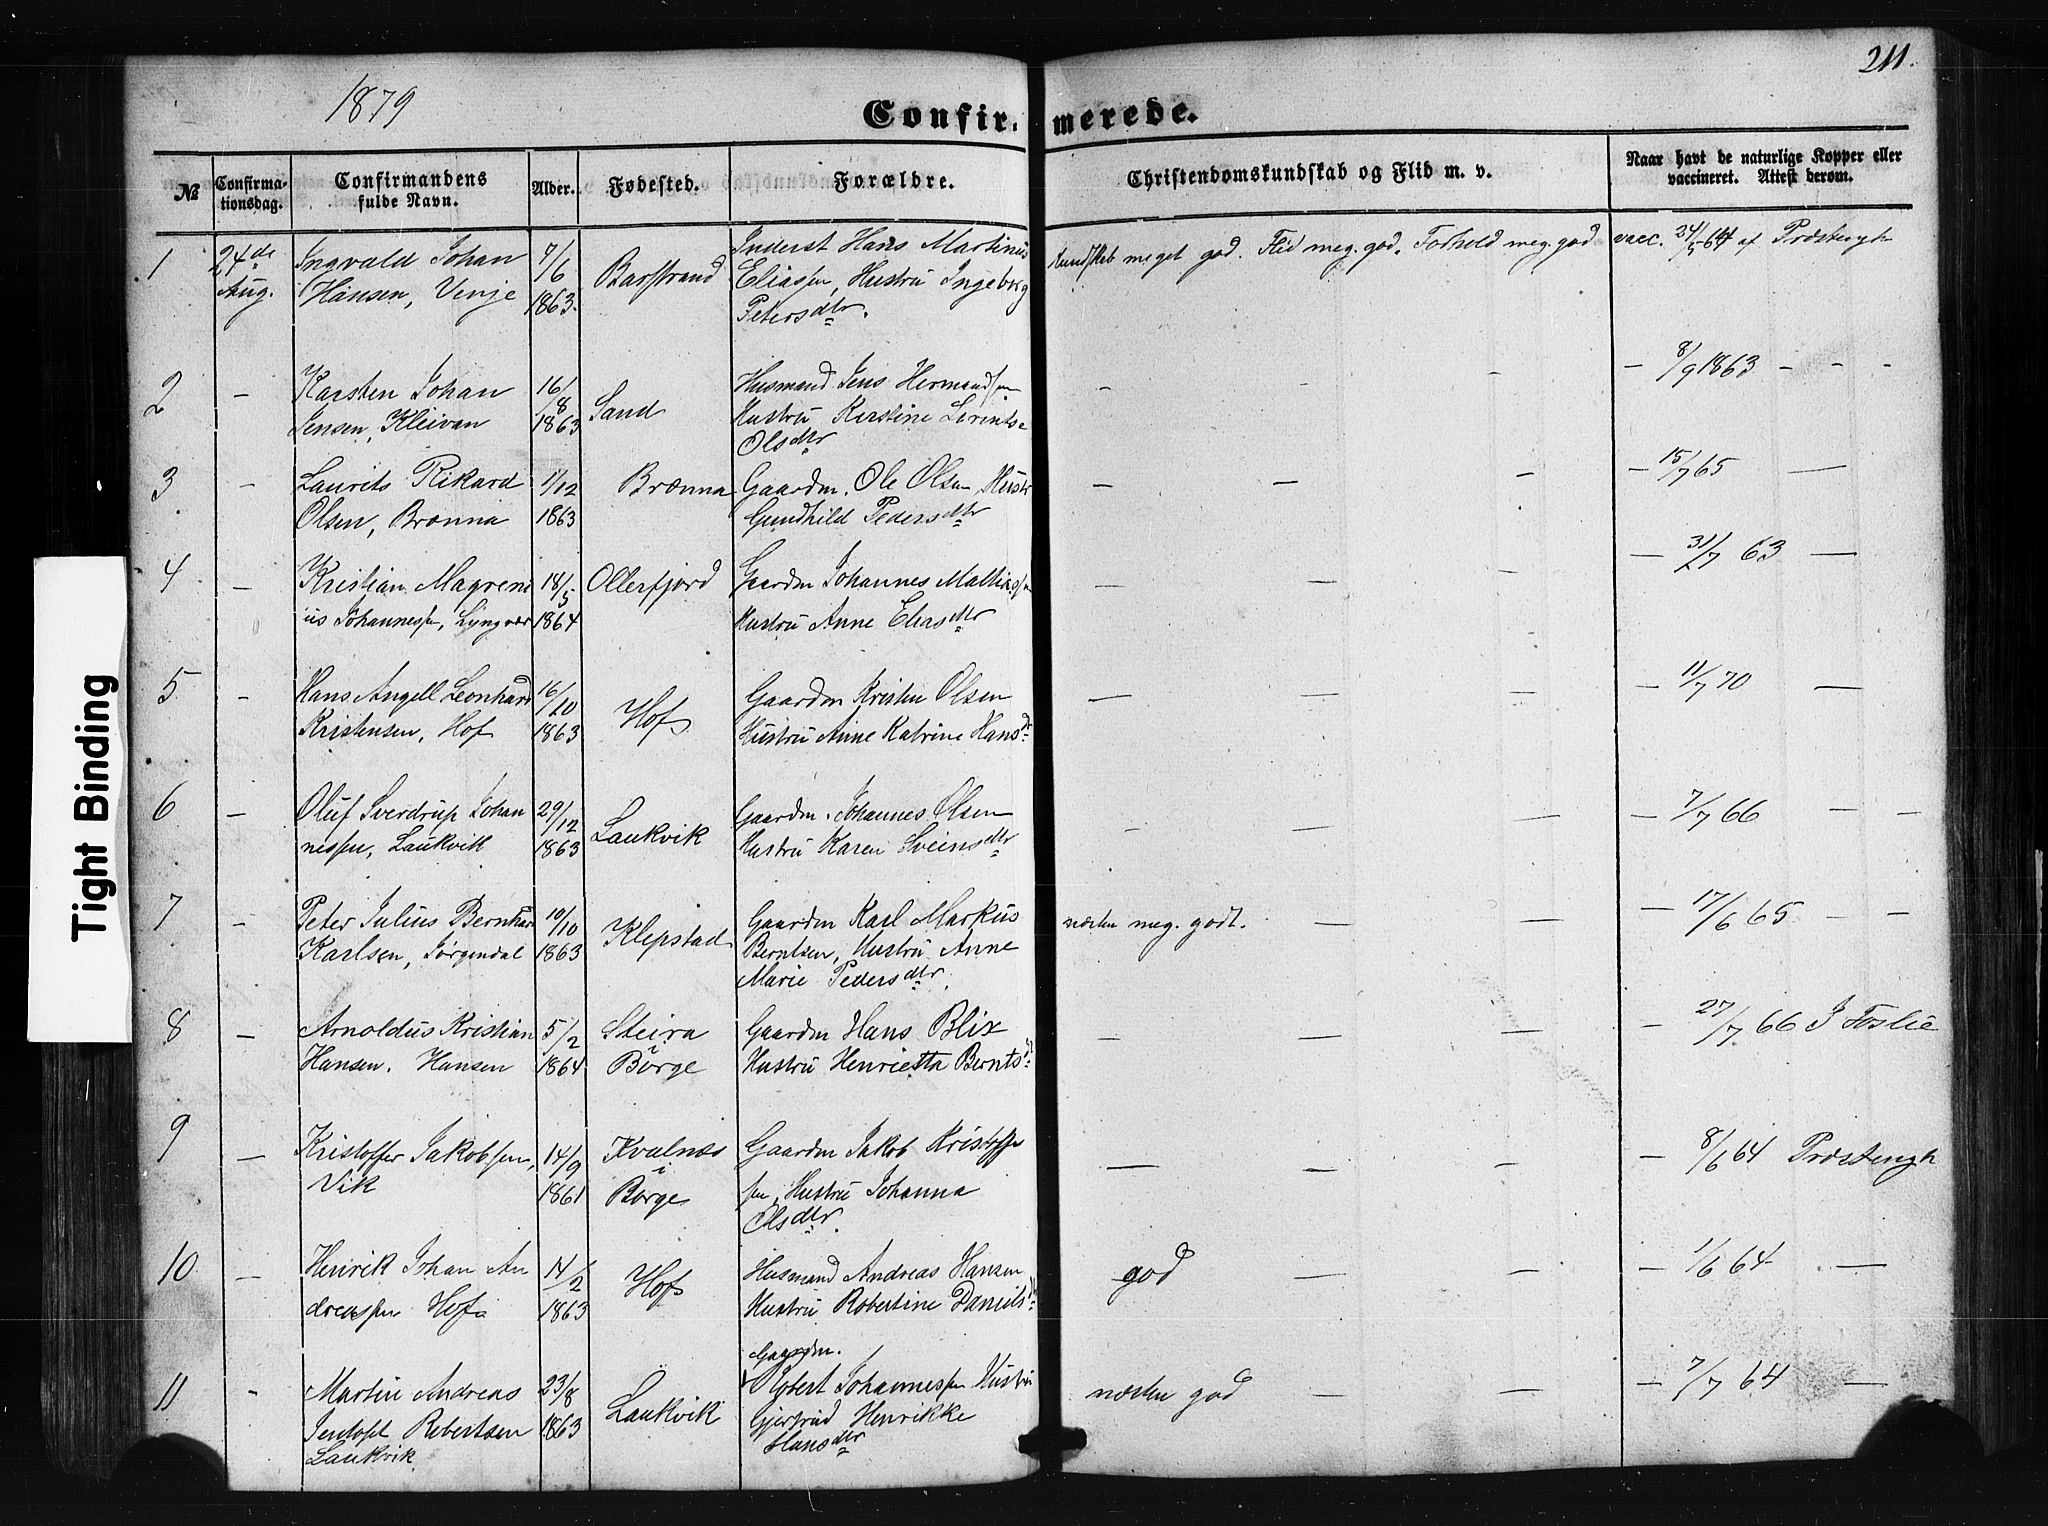 211.
1879
Confirmerede.
№ Confirma-tionsdag. Confirmandens fulde Navn. Alder. Fødested. Forældre. Christendomskundskab og Flid m. v. Naar havt de naturlige Kopper eller vaccineret. Attest derom.
1 24de Ingvald Johan 7/6 Barstrand Inderst Hans Martinus Kundskab meget god. Flid meg. god. Forhold meg. god vacc. 24/5 64 af
Aug. Hansen, Venje 1863. Eliassen, Hustru Ingeborg
Petersdtr.
2 — Karsten Johan 16/8 Sand Husmand Jens Hermandsen — — — — 8/9 1863 — — —
Jensen, Kleivan 1863 Hustru Kerstine
Olsdtr
3 — Laurits Rikard 1/12 Brænna Gaardm. Ole Olsen, Hustr — — — — 15/7 65 —
Olsen, Brænna 1863 Gundhild Pedersdtr
4 — Kristian Magren 18/5 Ollerfjord Gaardm Johannes Mathiassen — — — — 31/7 63 —
ius Johannessen, Lyngvær 1864 Hustru Anne Eliasdtr
5 — Hans Angell Leonhard 16/10 Hof Gaardm Kristen Olsen — — — — 11/7 70 —
Kristensen, Hof 1863 Hustru Anne Katrine Hansdr
6 — Oluf Sverdrup Johan 29/12 Laukvik Gaardm. Johannes Olsen — — — — 7/7 66 — —
nessen, Laukvik 1863 Hustru Karen Sveinsdtr
7 — Peter Julius Bernhar 10/10 Klepstad Gaardm Karl Markus næsten meg. godt. — — — 17/6 65 — —
Karlsen, Jørgendal 1863 Berntsen, Hustru Anne
Marie Pedersdtr.
8 — Arnoldus Kristian 5/2 Steira Gaardm Hans Blix — — — — 27/7 66 J Foslie
i
Hansen. Hansen 1864 Børge Hustru Henrietta Berntsd
9 — Kristoffer Jakobsen, 14/9 Kvalnæs Gaardm Jakob Kristoffer — — — — 8/6 64
i
Vik 1861 Børge sen, Hustru Johanna
Olsdtr.
10 — Henrik Johan An 14/2 Hof Husmand Andreas Hansen god — — — 1/6 64 —
dreassen Hof 1863 Hustru Robertine Danielsd
Gaardm.
11 — Martin Andreas 23/8 Laukvik Johannessen Hustru næsten god — — — 7/7 64 —
Jentoft Robertsen 1863 Gjertrud Henrikke
Laukvik Hansdtr
Tight Binding